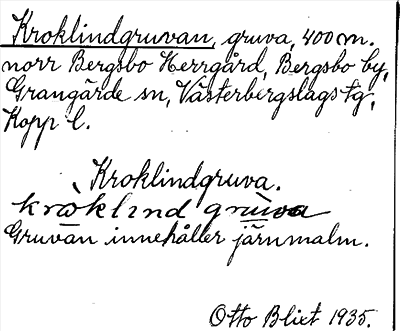 Kroklindgruvan, gruva, 400 m.
norr Bergsbo Herrgård, Bergsbo by,
Grangärde sn, Västerbergslags tg,
Kopp l.
Kroklindgruva.
kròklınd grùva
Gruvan innehåller järnmalm.
Otto Blixt 1935.